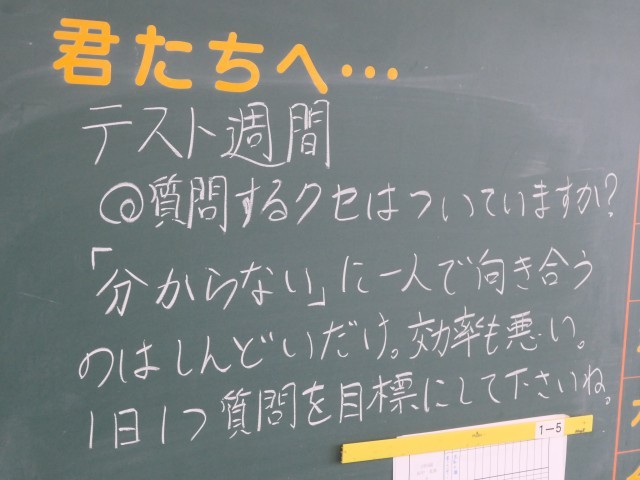 君たちへ…
テスト週間
◎質問するクセはついていますか?
「分からない」に一人で向き合う
のはしんどいだけ。効率も悪い。
1日1つ質問を目標にして下さいね。
1-5